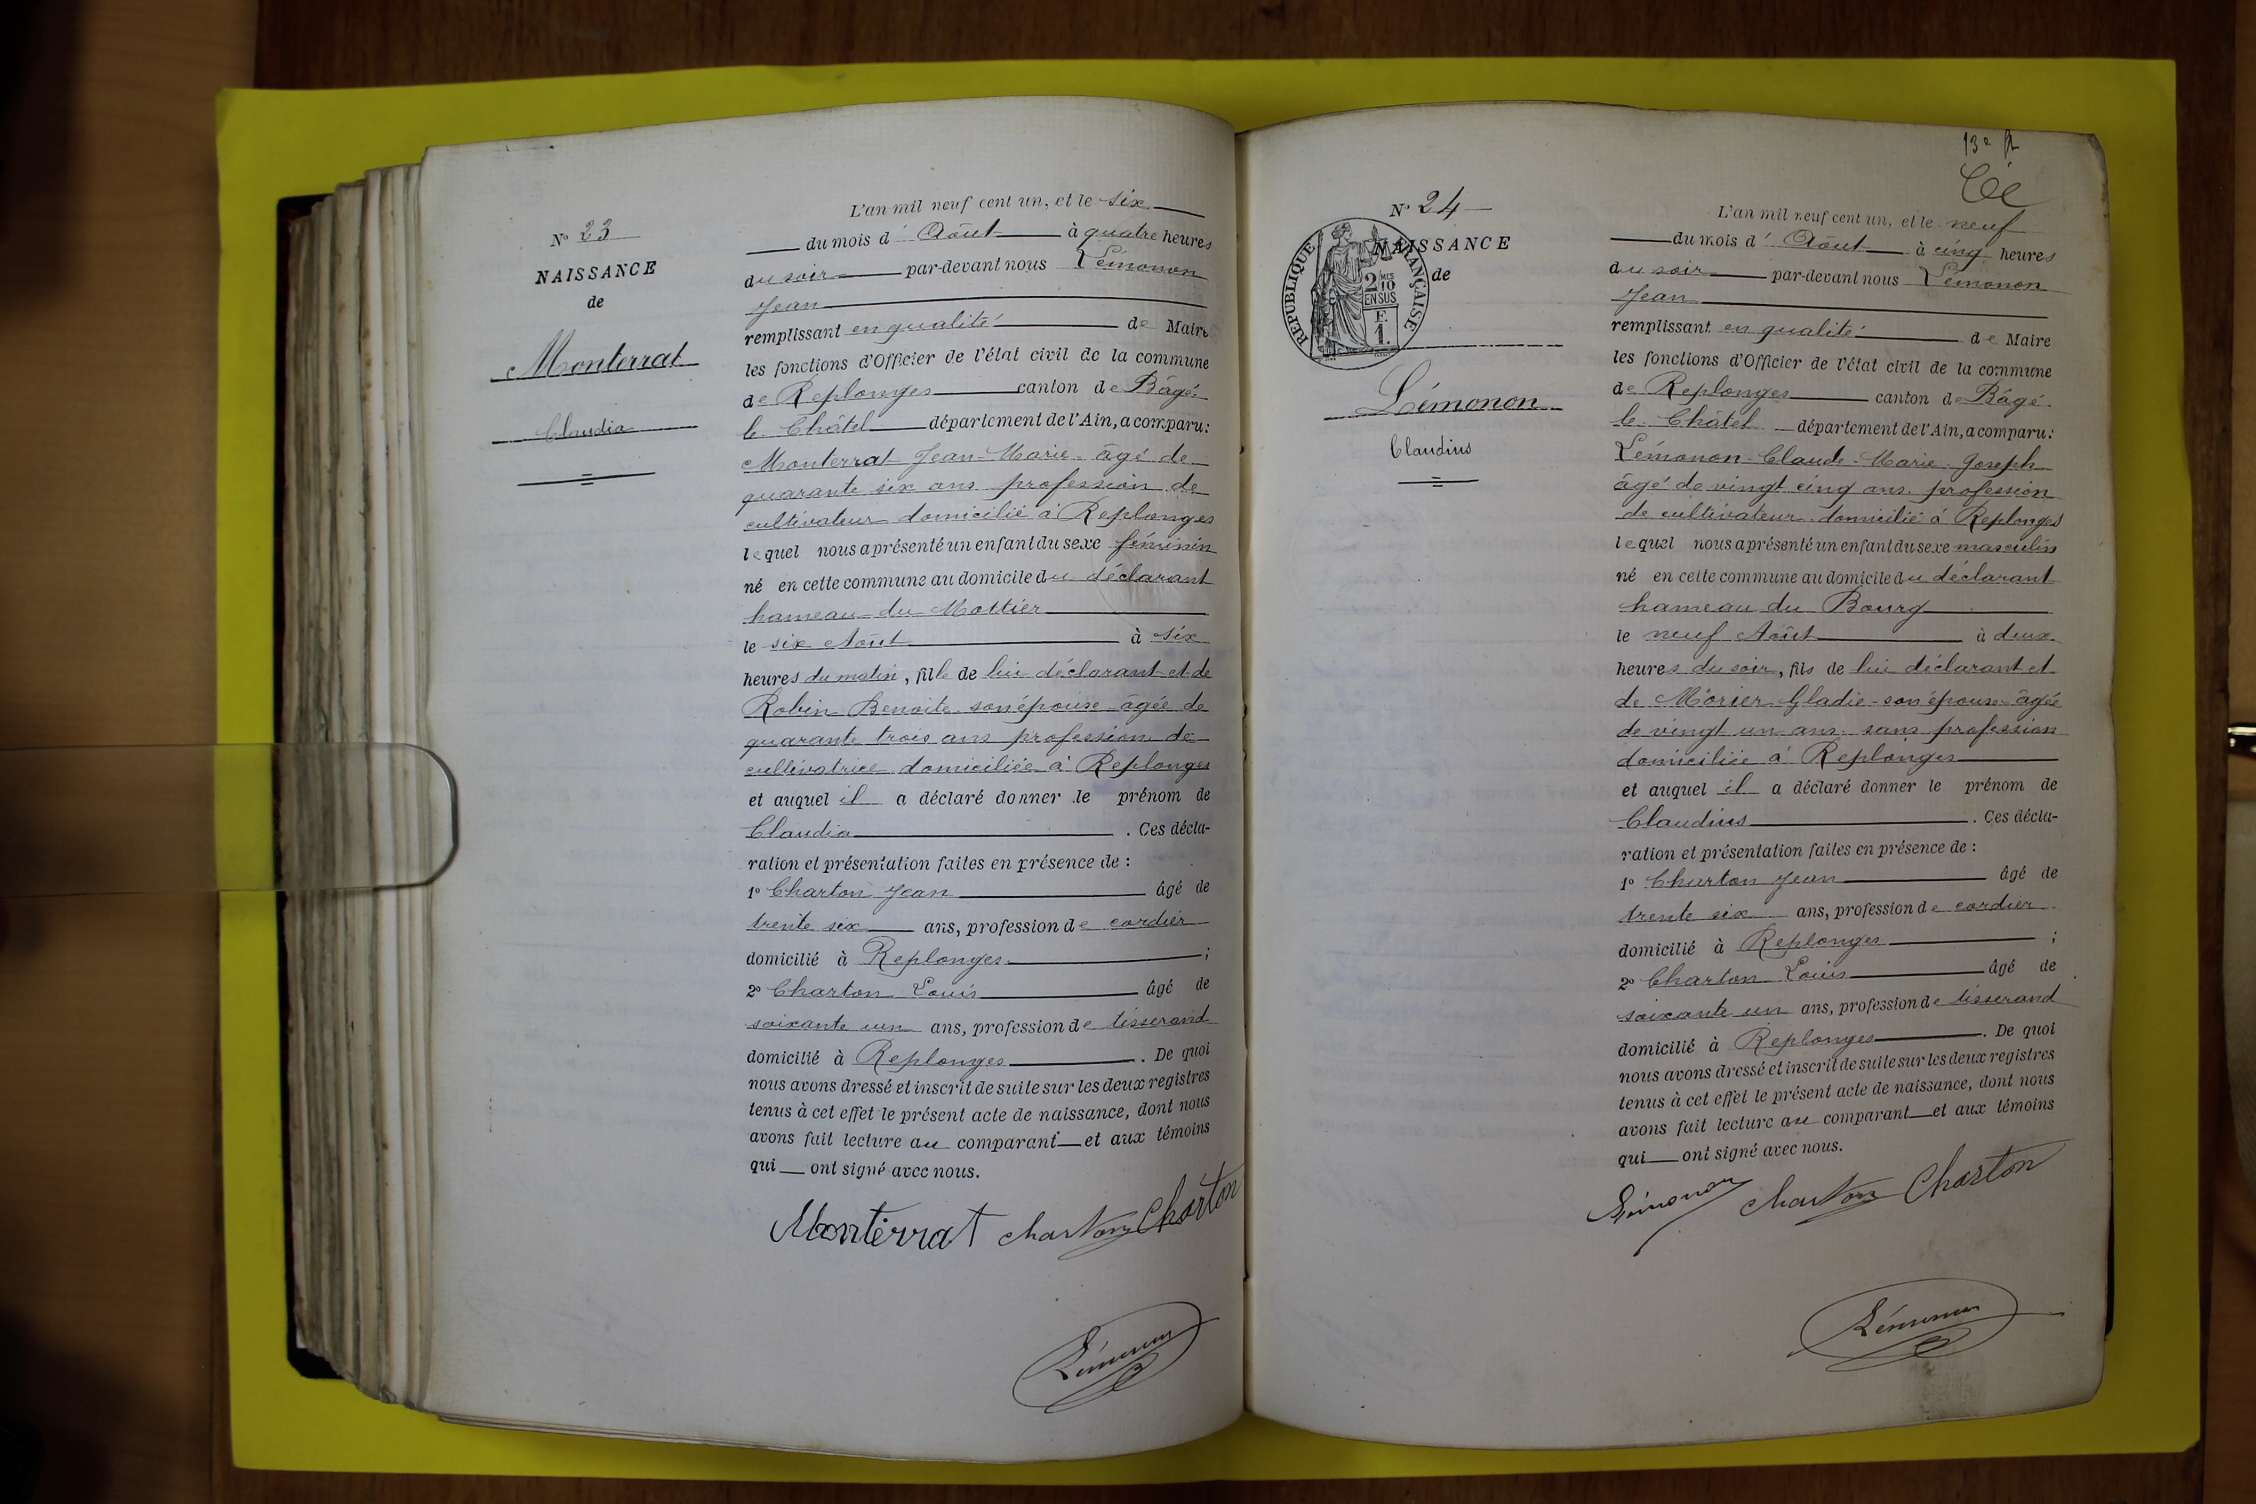 N° 23
NAISSANCE
de
Monterrat
Claudia
L'an mil neuf cent un, et le six
du mois d' Août à quatre heures
du soir par-devant nous Lémonon
Jean
remplissant en qualité de Maire
les fonctions d'Officier de l'état civil de la commune
de Replonges canton de Bâgé-
le Châtel département de l'Ain, a comparu :
Monterrat Jean-Marie âgé de
quarante six ans profession de
cultivateur domicilié à Replonges
lequel nous a présenté un enfant du sexe féminin
né en cette commune au domicile du déclarant
hameau du Mottier
le six Août à six
heures du matin, fille de lui déclarant et de
Robin Benoite son épouse âgée de
quarante trois ans profession de
cultivatrice domiciliée à Replonges
et auquel il a déclaré donner le prénom de
Claudia . Ces décla-
ration et présentation faites en présence de :
1° Charton Jean âgé de
trente six ans, profession de cordier
domicilié à Replonges ;
2° Charton Louis âgé de
soixante un ans, profession de tisserand
domicilié à Replonges . De quoi
nous avons dressé et inscrit de suite sur les deux registres
tenus à cet effet le présent acte de naissance, dont nous
avons fait lecture au comparant et aux témoins
qui ont signé avec nous.
Monterrat Charton Charton
Lémonon
13e
N° 24
NAISSANCE
de
RÉPUBLIQUE FRANÇAISE
2 MES
10
EN SUS
E.
1.
Lémonon
Claudius
L'an mil neuf cent un, et le neuf
du mois d' Août à cinq heures
du soir par-devant nous Lémonon
Jean
remplissant en qualité de Maire
les fonctions d'Officier de l'état civil de la commune
de Replonges canton de Bâgé-
le Châtel département de l'Ain, a comparu :
Lémonon Claude-Marie-Joseph
âgé de vingt cinq ans profession
de cultivateur domicilié à Replonges
lequel nous a présenté un enfant du sexe masculin
né en cette commune au domicile du déclarant
hameau du Bourg
le neuf Août à deux
heures du soir, fils de lui déclarant et
de Morier Gladie son épouse âgée
de vingt un ans sans profession
domiciliée à Replonges
et auquel il a déclaré donner le prénom de
Claudius . Ces décla-
ration et présentation faites en présence de :
1° Charton Jean âgé de
trente six ans, profession de cordier
domicilié à Replonges ;
2° Charton Louis âgé de
soixante un ans, profession de tisserand
domicilié à Replonges . De quoi
nous avons dressé et inscrit de suite sur les deux registres
tenus à cet effet le présent acte de naissance, dont nous
avons fait lecture au comparant et aux témoins
qui ont signé avec nous.
Lémonon Charton Charton
Lémonon